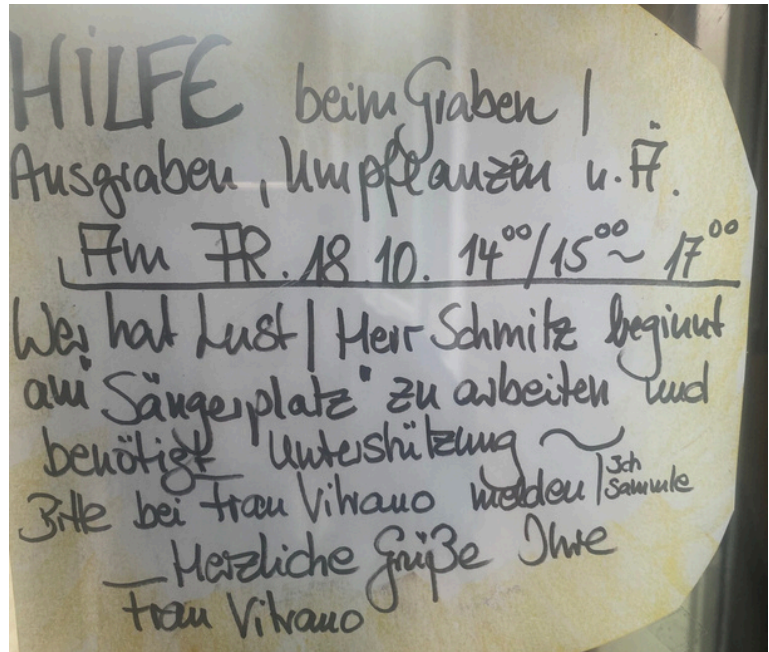 HILFE beim Graben |
Ausgraben, Umpflanzen u. Ä.
Am FR. 18.10. 14⁰⁰/15⁰⁰ ~ 17⁰⁰
Wer hat Lust | Herr Schmitz beginnt
am "Sängerplatz" zu arbeiten und
benötigt Unterstützung ~
Bitte bei Frau Vitrano melden | Ich sammle
_ Herzliche Grüße Ihre
Frau Vitrano